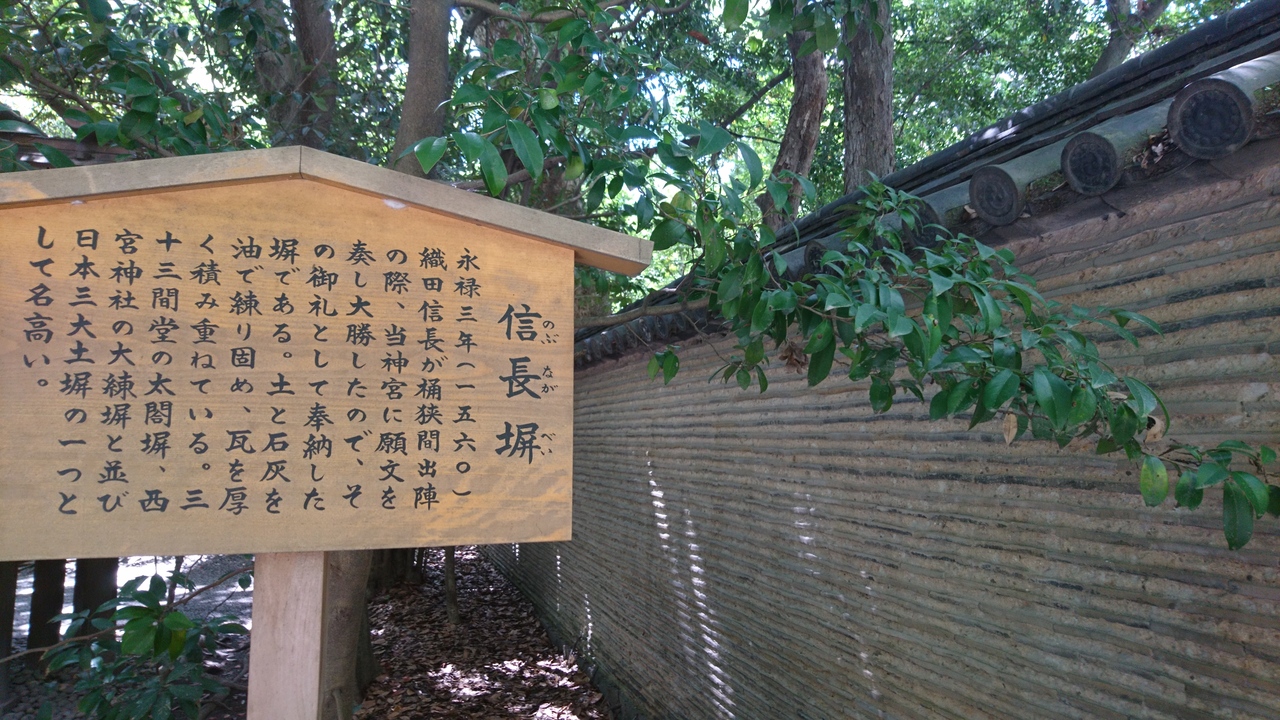 信長塀
のぶながべい
永禄三年(一五六〇)
織田信長が桶狭間出陣
の際、当神宮に願文を
奏し大勝したので、そ
の御礼として奉納した
塀である。土と石灰を
油で練り固め、瓦を厚
く積み重ねている。三
十三間堂の太閤塀、西
宮神社の大練塀と並び
日本三大土塀の一つと
して名高い。